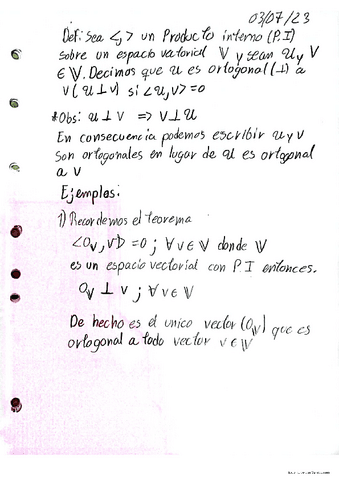 03/07/23
Def: Sea <,> un Producto interno (P.I)
sobre un espacio vectorial V y sean u y v
∈ V. Decimos que u es ortogonal (⊥) a
v (u ⊥ v) si <u,v> = 0
*Obs: u ⊥ v => v ⊥ u
En consecuencia podemos escribir u y v
son ortogonales en lugar de u es ortogonal
a v
Ejemplos:
1) Recordemos el teorema
<0v, v> = 0 ; ∀ v ∈ V donde V
es un espacio vectorial con P.I entonces.
0v ⊥ v ; ∀ v ∈ V
De hecho es el unico vector (0v) que es
ortogonal a todo vector v ∈ V